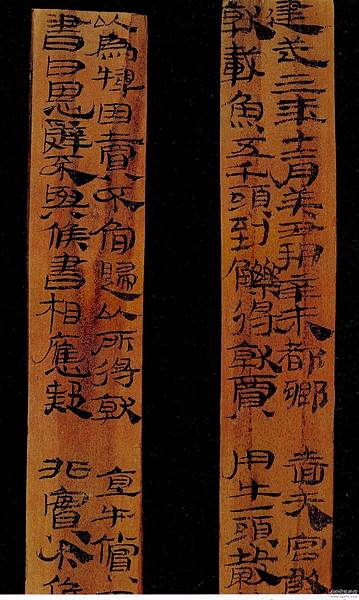 建武三年十二月癸丑朔辛未都鄉嗇夫宮敢
就載魚五千頭到觻得就賈用牛一頭穀
以為犅田賣不肯歸以所得就直牛償不
書曰恩辭不與候書相應疑非實今候